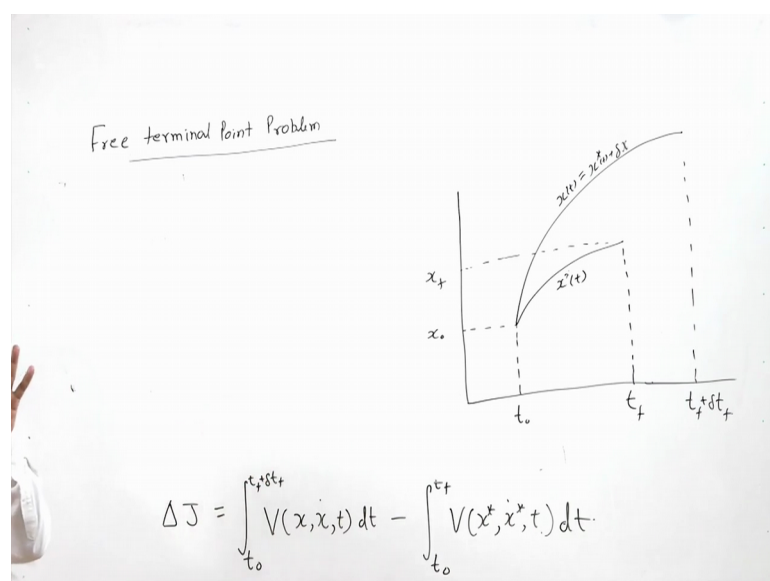 Free terminal Point Problem
x(t) = x*(t) + δx
x*(t)
x_f
x₀
t₀
t_f
t_f+δt_f
ΔJ = ∫_{t₀}^{t_f+δt_f} V(x,ẋ,t) dt − ∫_{t₀}^{t_f} V(x*,ẋ*,t) dt.